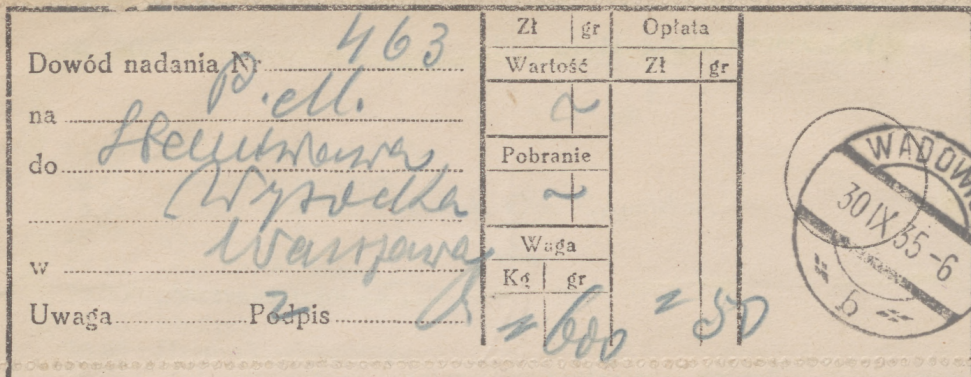 Dowód nadania Nr 463
na P. M.
do
Wysocka
w Warszawa
Uwaga Podpis
Zł gr Opłata
Wartość Zł gr
~
Pobranie
~
Waga
Kg gr
= 600 = 50
WADOW
30 IX 35-6
b